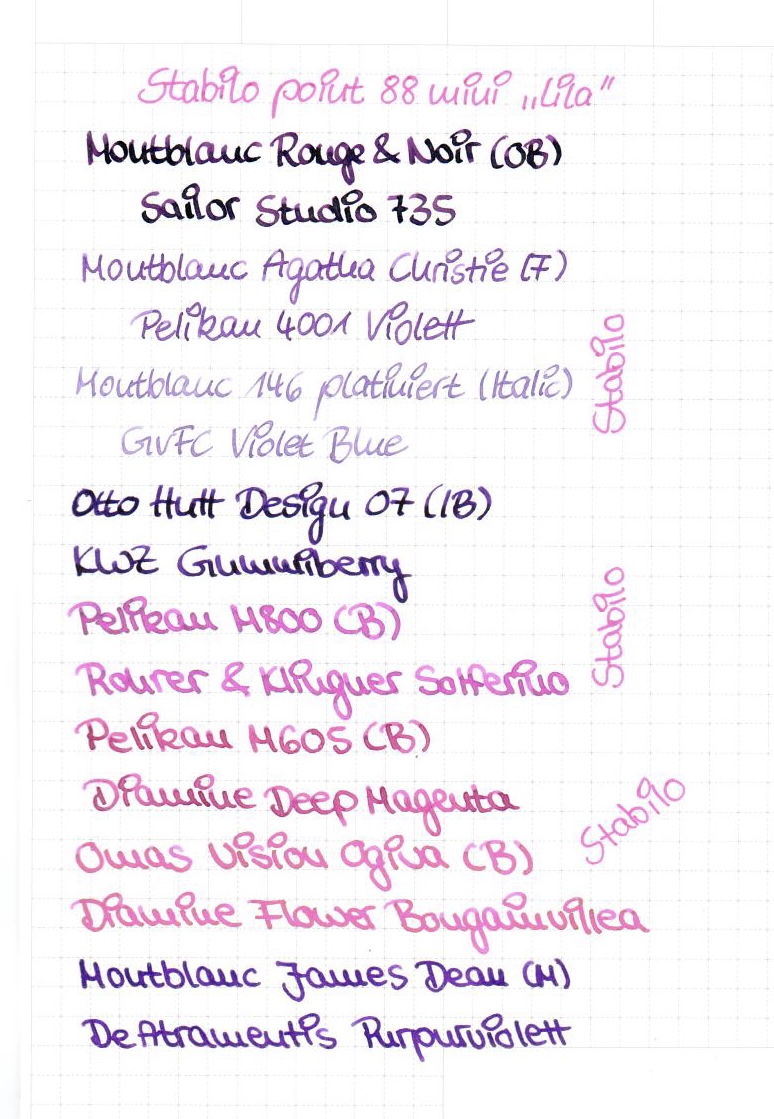 Stabilo point 88 mini „Lila“
Montblanc Rouge & Noir (OB)
Sailor Studio 735
Montblanc Agatha Christie (F)
Pelikan 4001 Violett
Stabilo
Montblanc 146 platiniert (Italic)
GvFC Violet Blue
Otto Hutt Design 07 (IB)
KWZ Gummiberry
Stabilo
Pelikan M800 (B)
Rohrer & Klingner Solferino
Pelikan M605 (B)
Diamine Deep Magenta
Stabilo
Omas Vision Ogiva (B)
Diamine Flower Bougainvillea
Montblanc James Dean (M)
DeAtramentis Purpurviolett